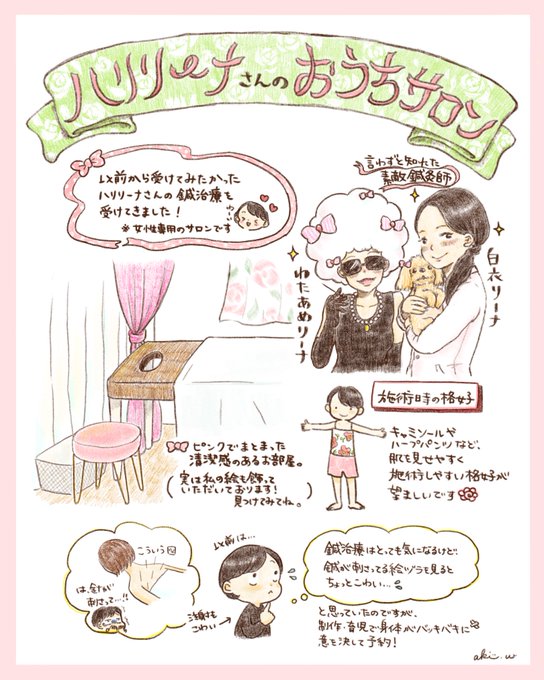 ハリリーナさんのおうちサロン
以前から受けてみたかった
ハリリーナさんの鍼治療を
受けてきました！
※女性専用のサロンです
言わずと知れた
素敵鍼灸師
わたあめリーナ
白衣リーナ
ピンクでまとまった
清潔感のあるお部屋。
実は私の絵も飾って
いただいております！
見つけてみてね。
施術時の格好
キャミソールや
ハーフパンツなど、
肌を見せやすく
施術しやすい格好が
望ましいです
以前は…
こういう図
は、針が
刺さって…!!
注射も
こわい
鍼治療はとっても気になるけど…
鍼が刺さってる絵ヅラを見ると
ちょっとこわい…
と思っていたのですが、
制作・育児で身体がバッキバキに
意を決して予約！
aki.w